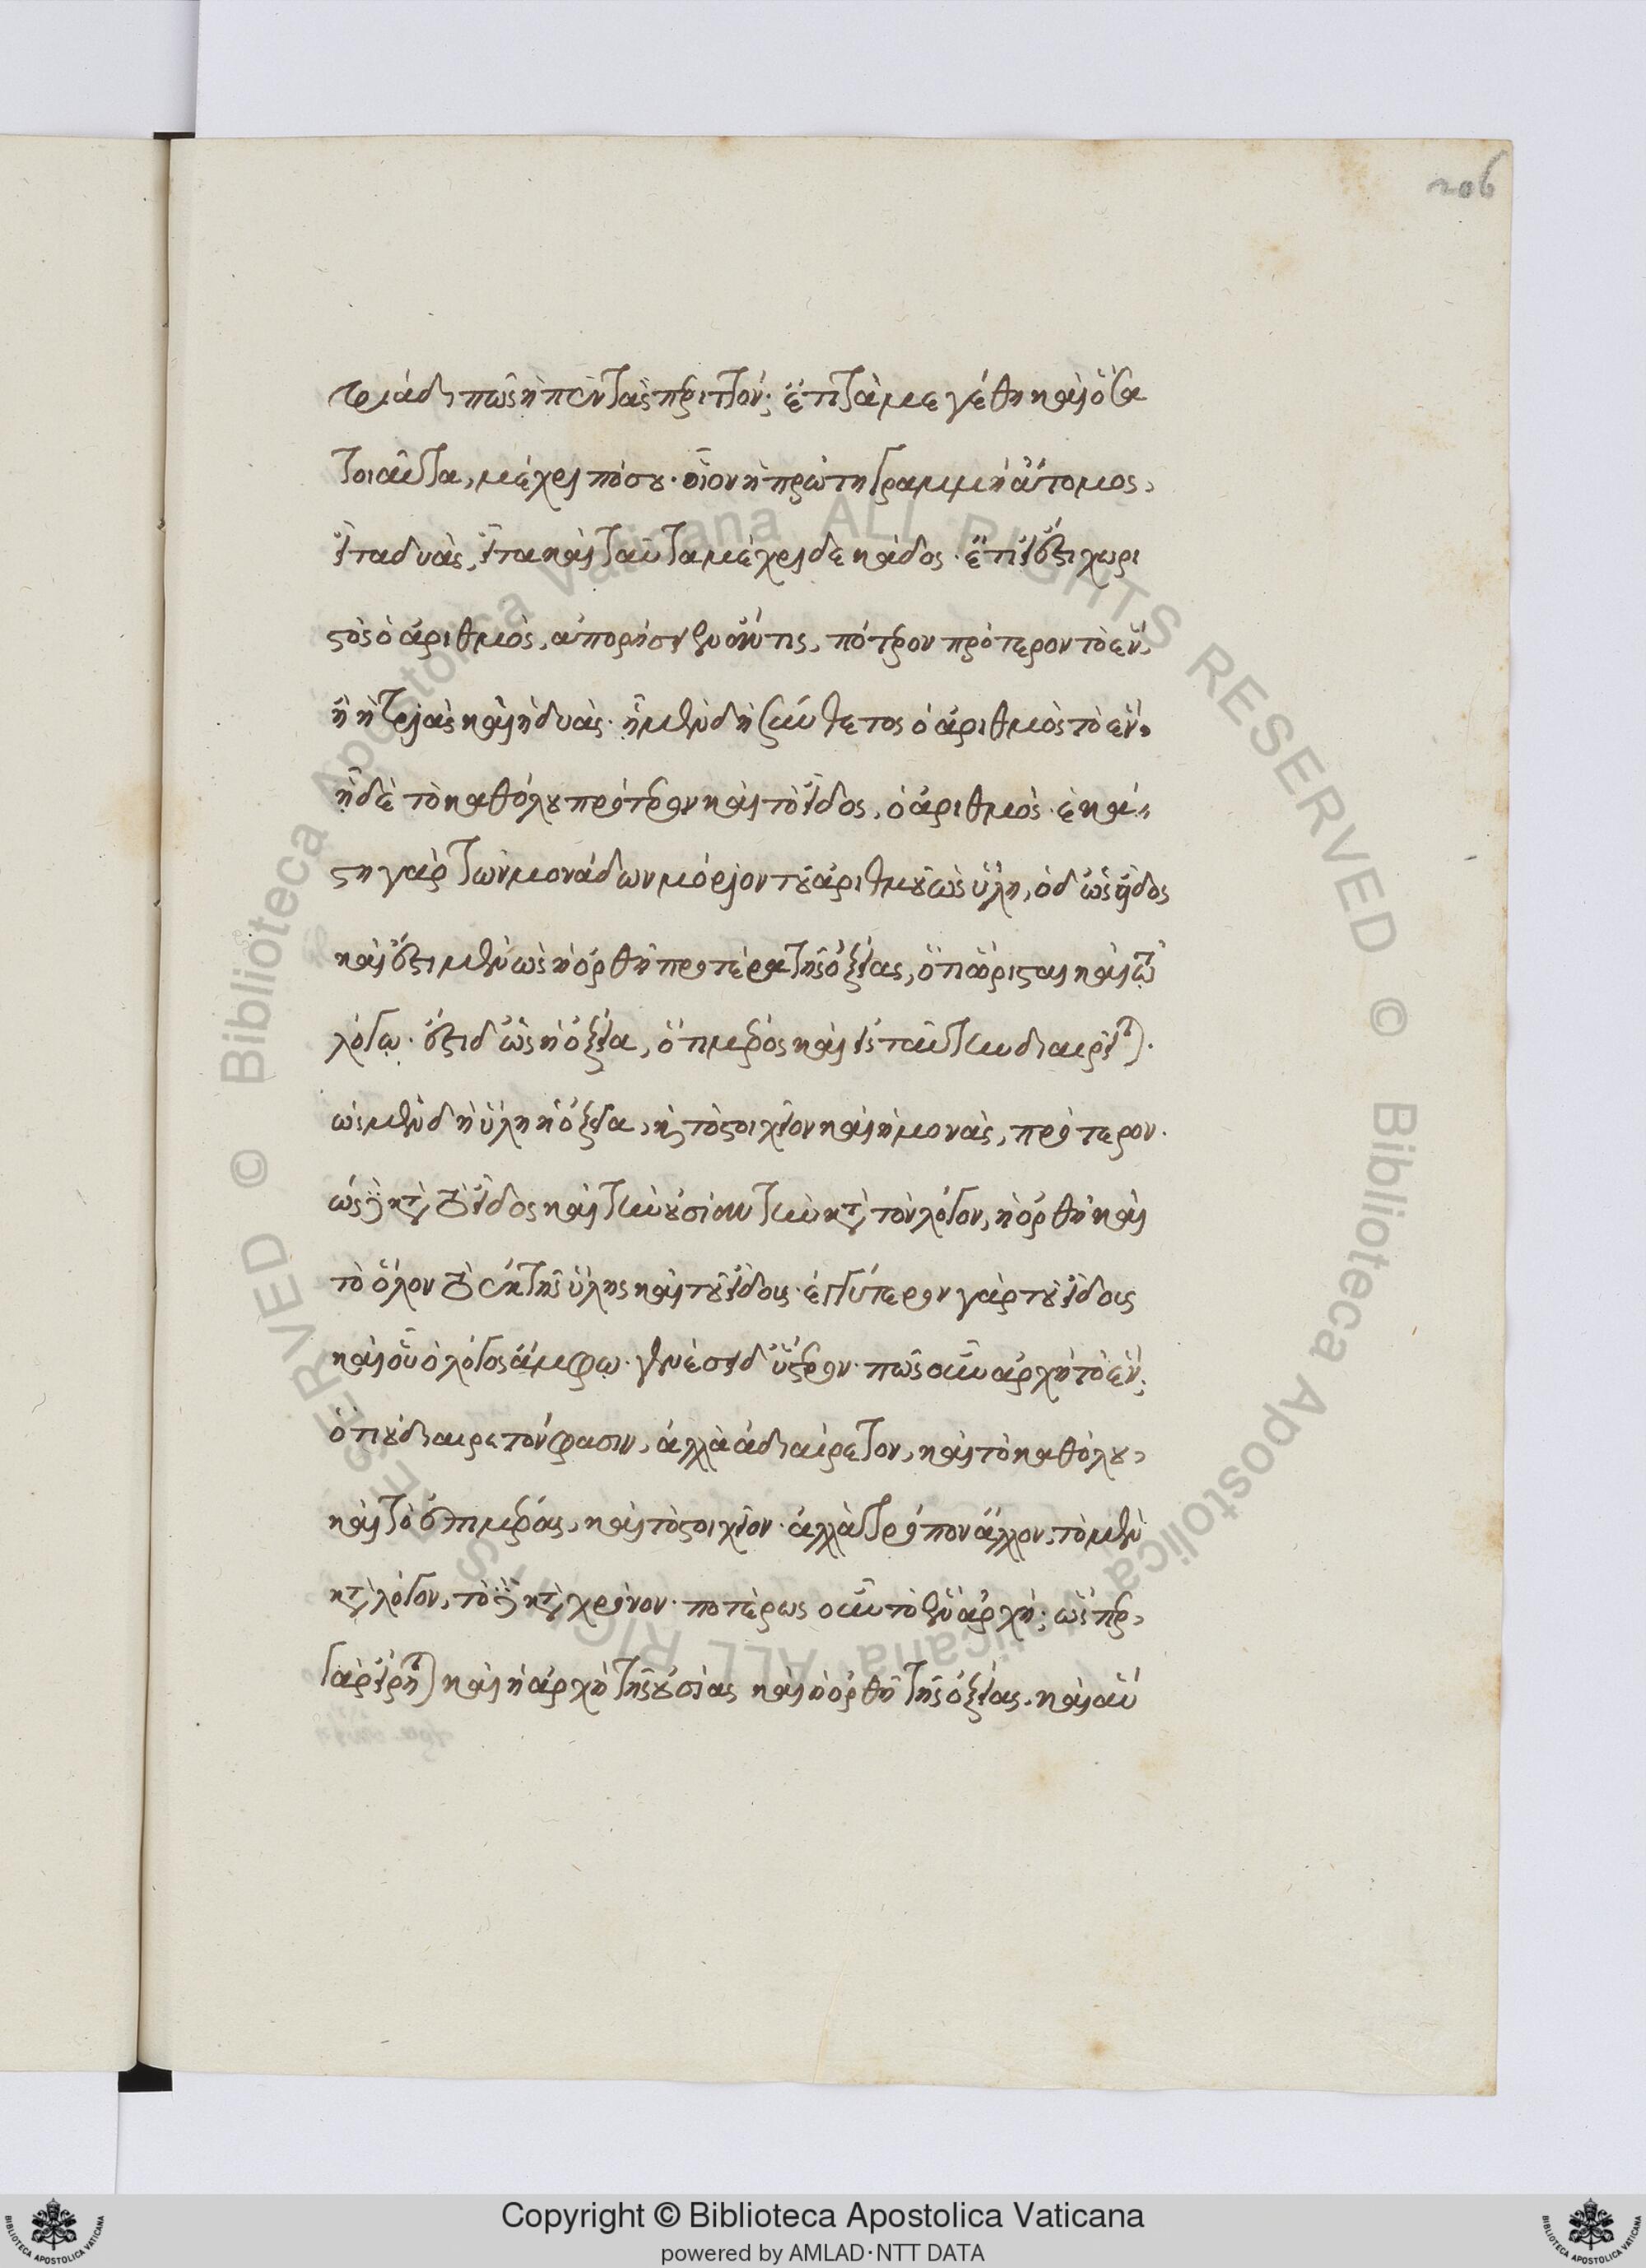 206
τριάδι πῶς ἡ πεντὰς περιττόν; ἔτι τὰ μεγέθη καὶ ὅσα
τοιαῦτα, μέχρι πόσου. οἷον ἡ πρώτη γραμμὴ ἄτομος,
εἶτα δυὰς, εἶτα καὶ ταῦτα μέχρι δεκάδος. ἔτι εἰ ἔστι χωρι
στὸς ὁ ἀριθμὸς, ἀπορήσειεν ἄν τις, πότερον πρότερον τὸ ἓν,
ἢ ἡ τριὰς καὶ ἡ δυὰς. ᾗ μὲν δὴ σύνθετος ὁ ἀριθμὸς τὸ ἓν,
ᾗ δὲ τὸ καθόλου πρότερον καὶ τὸ εἶδος, ὁ ἀριθμὸς. ἑκά
στη γὰρ τῶν μονάδων μόριον τοῦ ἀριθμοῦ ὡς ὕλη, ὁ δ' ὡς εἶδος
καὶ ἔστι μὲν ὡς ἡ ὀρθὴ προτέρα τῆς ὀξείας, ὅτι ὥρισται καὶ τῷ
λόγῳ. ἔστι δ' ὡς ἡ ὀξεῖα, ὅτι μέρος καὶ εἰς ταύτην διαιρεῖται.
ὡς μὲν δὴ ὕλη ἡ ὀξεῖα, καὶ τὸ στοιχεῖον καὶ ἡ μονὰς, πρότερον.
ὡς δὲ κατὰ τὸ εἶδος καὶ τὴν οὐσίαν τὴν κατὰ τὸν λόγον, ἡ ὀρθὴ καὶ
τὸ ὅλον τὸ ἐκ τῆς ὕλης καὶ τοῦ εἴδους. ἐγγύτερον γὰρ τοῦ εἴδους
καὶ οὗ ὁ λόγος ἄμφω. γενέσει δ' ὕστερον. πῶς οὖν ἀρχὴ τὸ ἕν;
ὅτι οὐ διαιρετόν φασιν, ἀλλὰ ἀδιαίρετον, καὶ τὸ καθόλου,
καὶ τὸ ἐπὶ μέρους, καὶ τὸ στοιχεῖον. ἀλλὰ τρόπον ἄλλον, τὸ μὲν
κατὰ λόγον, τὸ δὲ κατὰ χρόνον. ποτέρως οὖν τὸ ἓν ἀρχή; ὥσπερ
γὰρ εἴρηται καὶ ἡ ἀρχὴ τῆς οὐσίας καὶ ἡ ὀρθὴ τῆς ὀξείας. καὶ αὕ
Copyright © Biblioteca Apostolica Vaticana
powered by AMLAD·NTT DATA